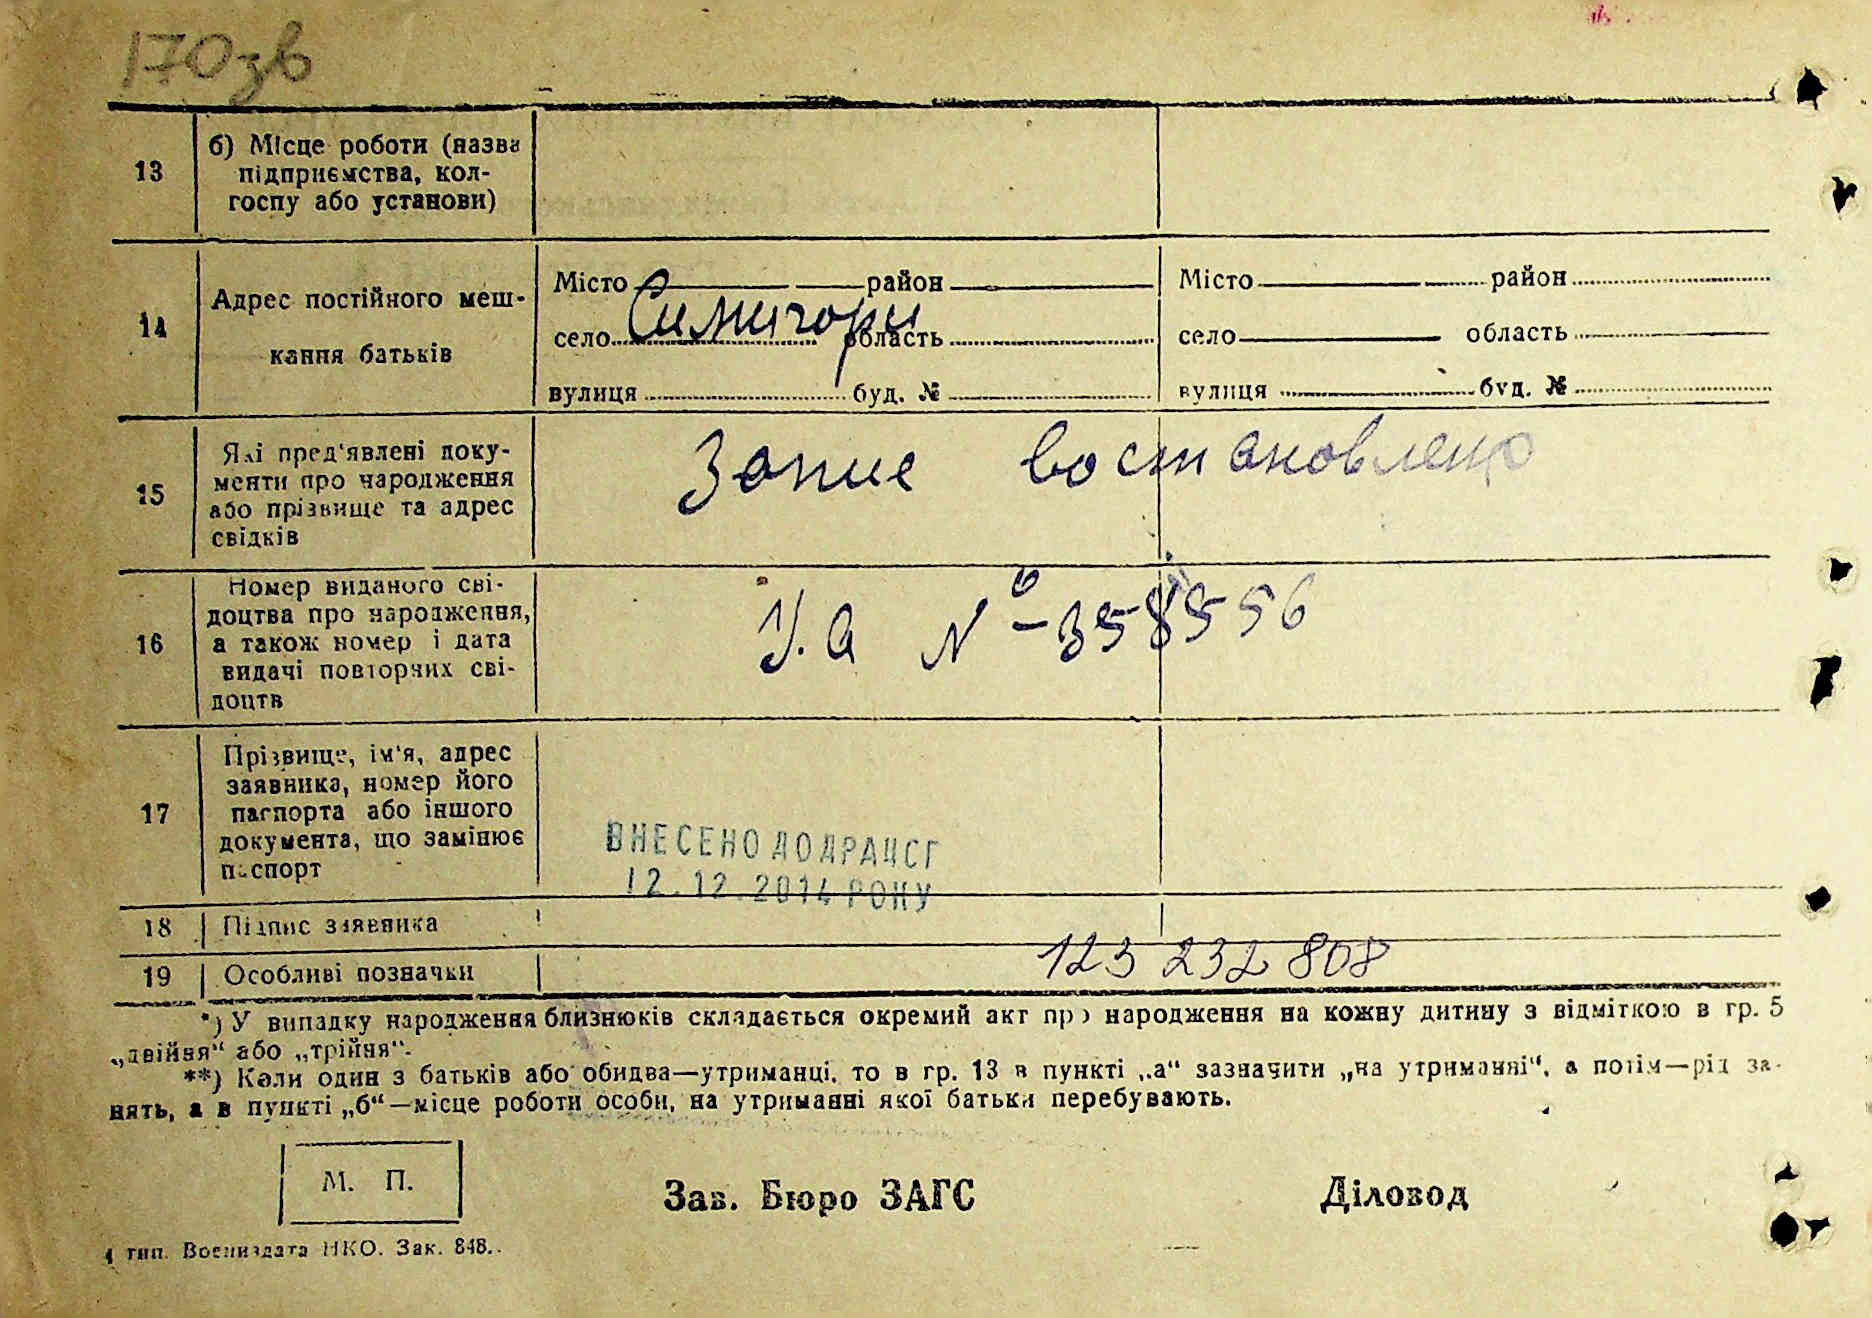 170зв
13
б) Місце роботи (назва
підприємства, кол-
госпу або установи)
14
Адрес постійного меш-
кання батьків
Місто район
село Симигори область
вулиця буд. №
Місто район
село область
вулиця буд. №
15
Які пред'явлені доку-
менти про народження
або прізвище та адрес
свідків
Запис востановлено
16
Номер виданого сві-
доцтва про народження,
а також номер і дата
видачі повторних сві-
доцтв
У.а № 358556
17
Прізвище, ім'я, адрес
заявника, номер його
паспорта або іншого
документа, що замінює
паспорт
ВНЕСЕНО ДО ДРАЦСГ
12.12.2014 РОКУ
18 Підпис заявника
19 Особливі позначки
123 232 808
*) У випадку народження близнюків складається окремий акт про народження на кожну дитину з відміткою в гр. 5
„двійня“ або „трійня“.
**) Коли один з батьків або обидва—утриманці, то в гр. 13 в пункті „а“ зазначити „на утриманні“, а потім—рід за-
нять, а в пункті „б“—місце роботи особи, на утриманні якої батьки перебувають.
М. П.
Зав. Бюро ЗАГС
Діловод
тип. Воениздата НКО. Зак. 848.